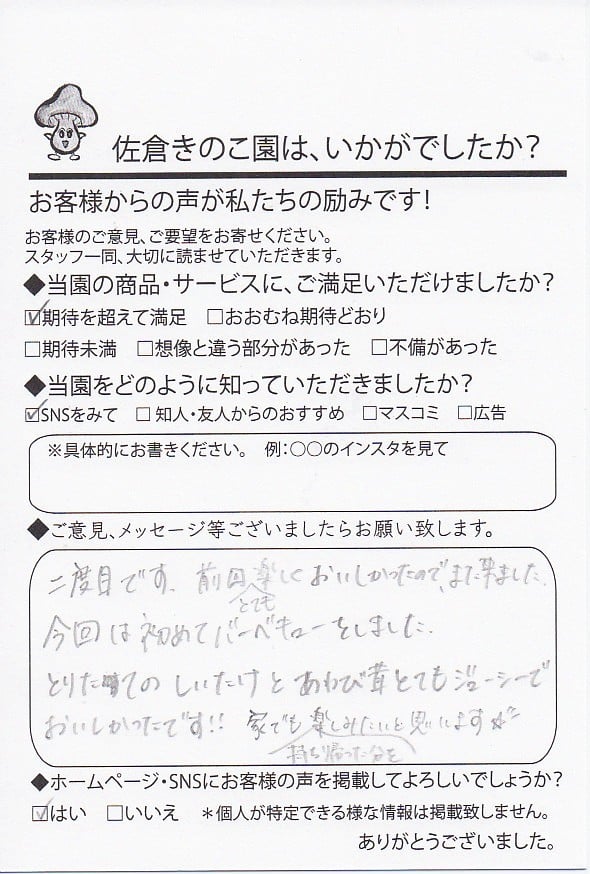 佐倉きのこ園は、いかがでしたか？
お客様からの声が私たちの励みです！
お客様のご意見、ご要望をお寄せください。
スタッフ一同、大切に読ませていただきます。
◆当園の商品・サービスに、ご満足いただけましたか？
☑期待を超えて満足 □おおむね期待どおり
□期待未満 □想像と違う部分があった □不備があった
◆当園をどのように知っていただきましたか？
☑SNSをみて □知人・友人からのおすすめ □マスコミ □広告
※具体的にお書きください。 例：○○のインスタを見て
◆ご意見、メッセージ等ございましたらお願い致します。
二度目です。前回とても楽しくおいしかったので、また来ました。
今回は初めてバーベキューをしました。
とりたてのしいたけとあわび茸とてもジューシーで
おいしかったです!! 家でも持ち帰った分を楽しみたいと思います
◆ホームページ・SNSにお客様の声を掲載してよろしいでしょうか？
☑はい □いいえ ＊個人が特定できる様な情報は掲載致しません。
ありがとうございました。